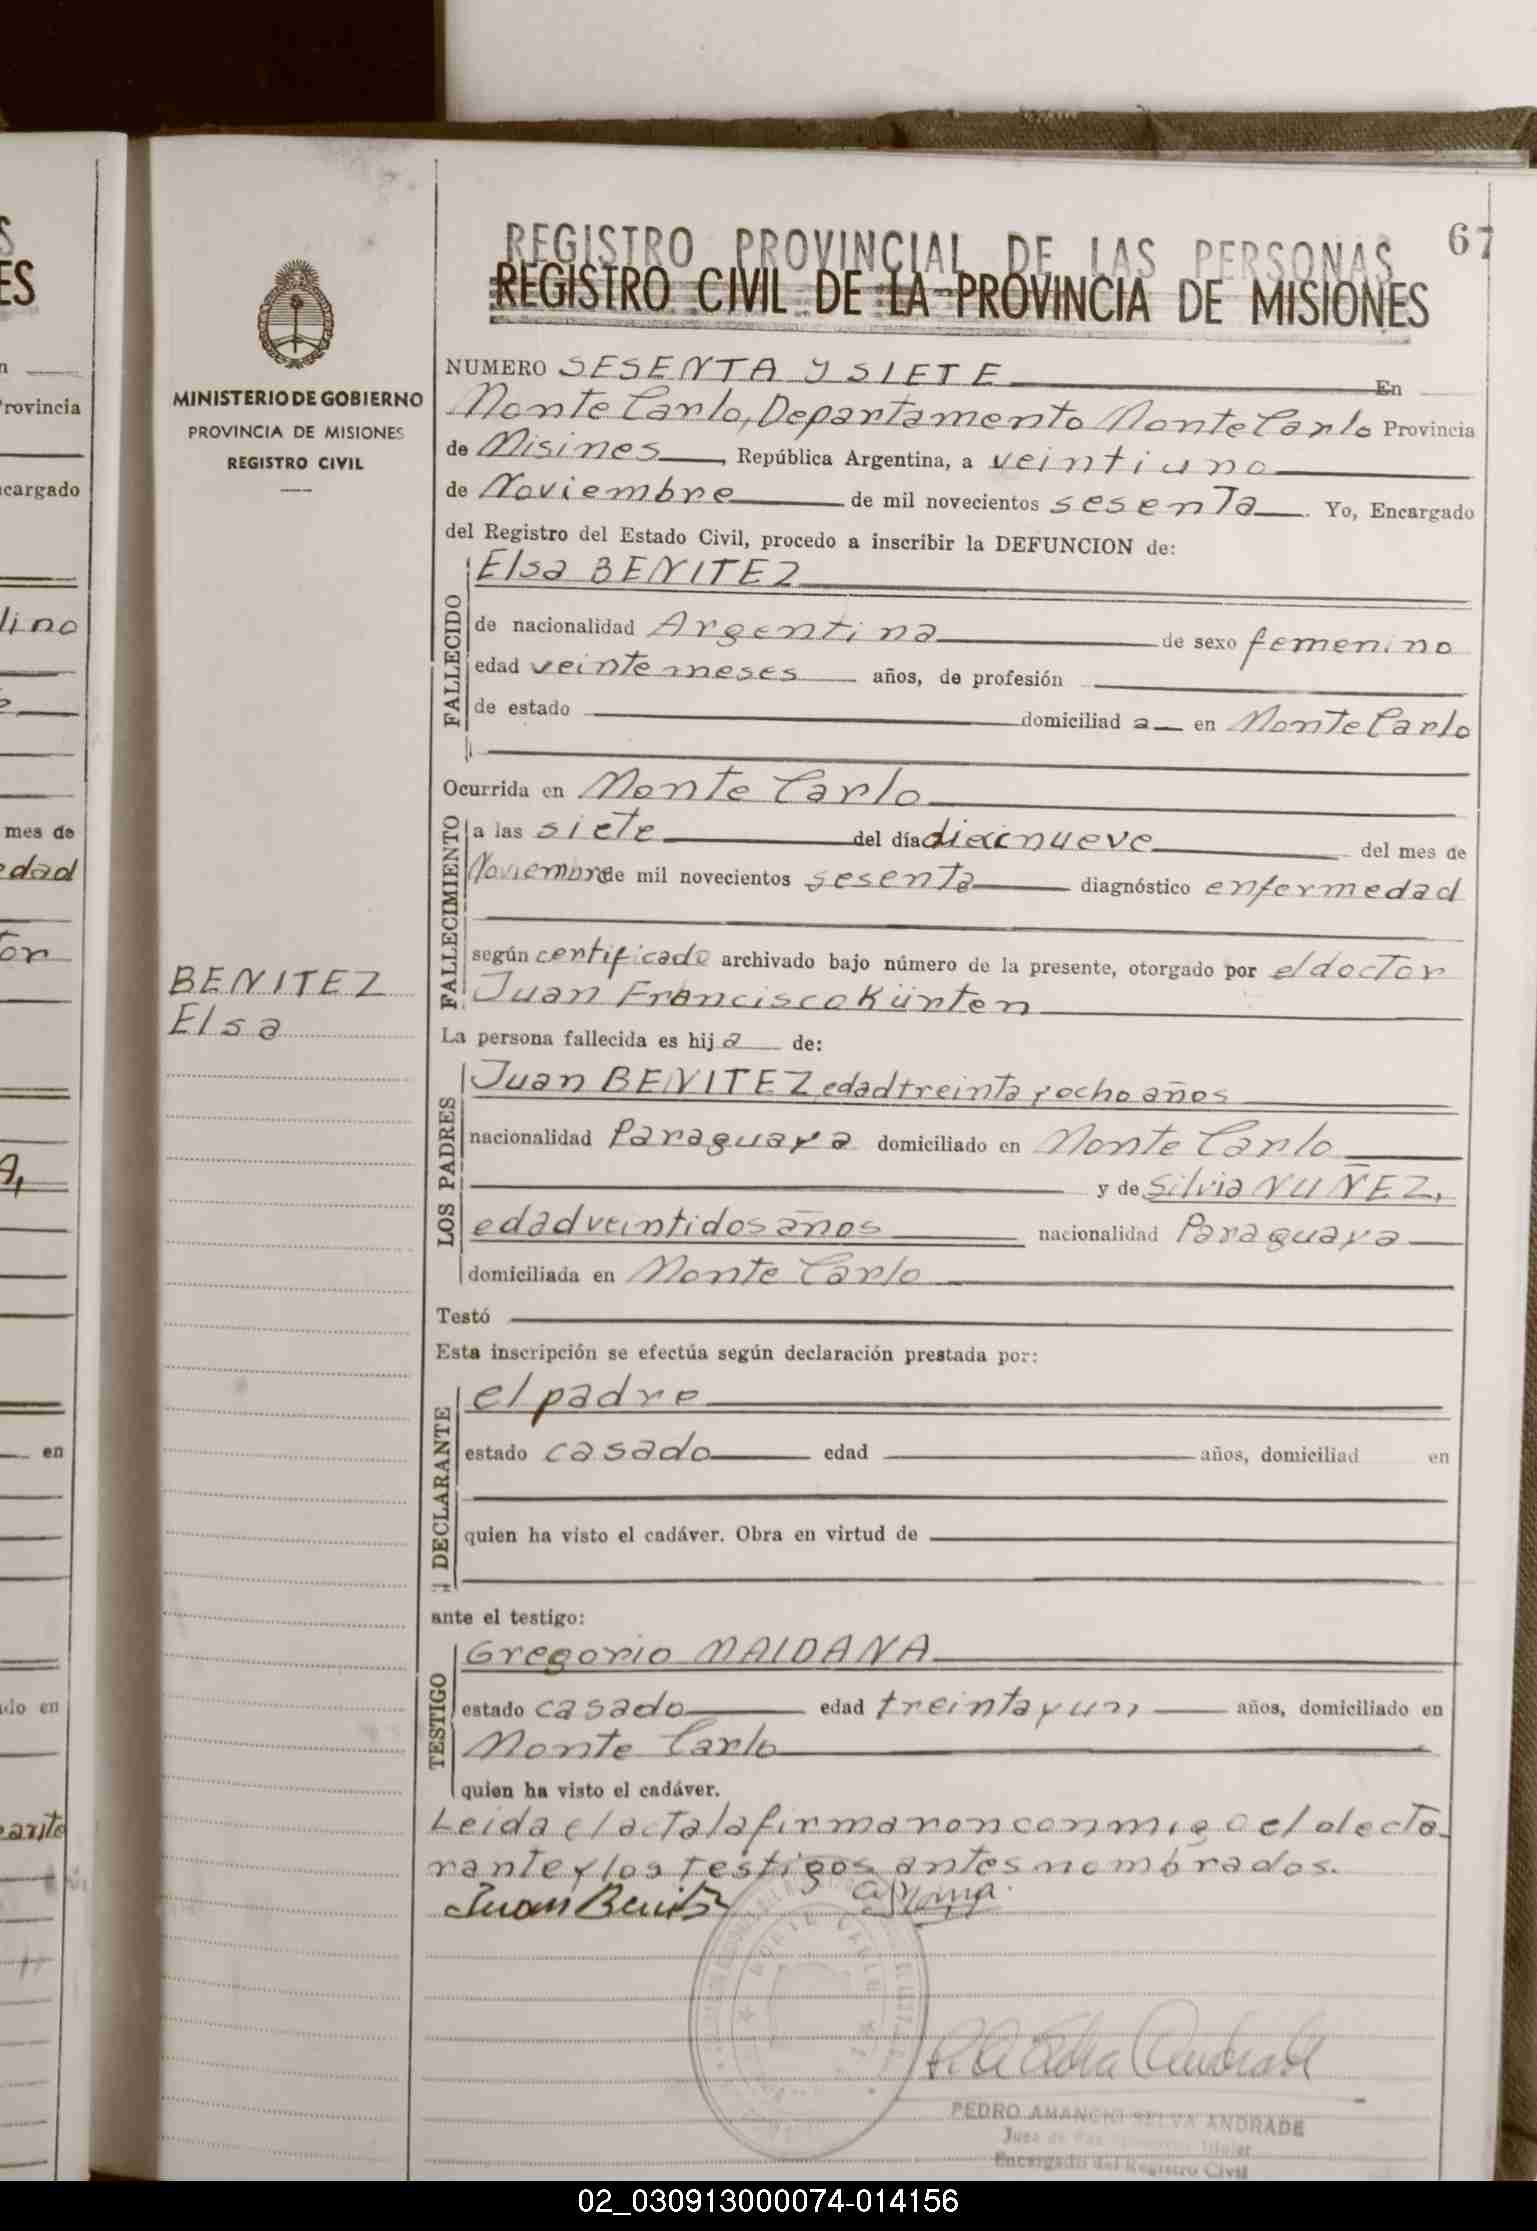 67
REGISTRO PROVINCIAL DE LAS PERSONAS
REGISTRO CIVIL DE LA PROVINCIA DE MISIONES
MINISTERIO DE GOBIERNO
PROVINCIA DE MISIONES
REGISTRO CIVIL
NUMERO SESENTA Y SIETE En
Monte Carlo, Departamento Monte Carlo Provincia
de Misines, República Argentina, a veintiuno
de Noviembre de mil novecientos sesenta. Yo, Encargado
del Registro del Estado Civil, procedo a inscribir la DEFUNCION de:
FALLECIDO
Elsa BENITEZ
de nacionalidad Argentina de sexo femenino
edad veinte meses años, de profesión
de estado domiciliad a en Monte Carlo
Ocurrida en Monte Carlo
FALLECIMIENTO
a las siete del día diecinueve del mes de
Noviembre de mil novecientos sesenta diagnóstico enfermedad
según certificado archivado bajo número de la presente, otorgado por el doctor
Juan Francisco Künten
BENITEZ
Elsa
La persona fallecida es hij a de:
LOS PADRES
Juan BENITEZ, edad treinta y ocho años
nacionalidad Paraguaya domiciliado en Monte Carlo
y de Silvia NUÑEZ,
edad veintidos años nacionalidad Paraguaya
domiciliada en Monte Carlo
Testó
Esta inscripción se efectúa según declaración prestada por:
DECLARANTE
el padre
estado casado edad años, domiciliad en
quien ha visto el cadáver. Obra en virtud de
ante el testigo:
TESTIGO
Gregorio MALDANA
estado casado edad treinta y un, años, domiciliado en
Monte Carlo
quien ha visto el cadáver.
Leida el acta la firmaron conmigo el
rante y los testigos antes nombrados.
Juan Benitez
PEDRO AMANCIO SELVA ANDRADE
Encargado del Registro Civil
lino
ES
rovincia
cargado
mes de
edad
tor
en
do en
02_030913000074-014156